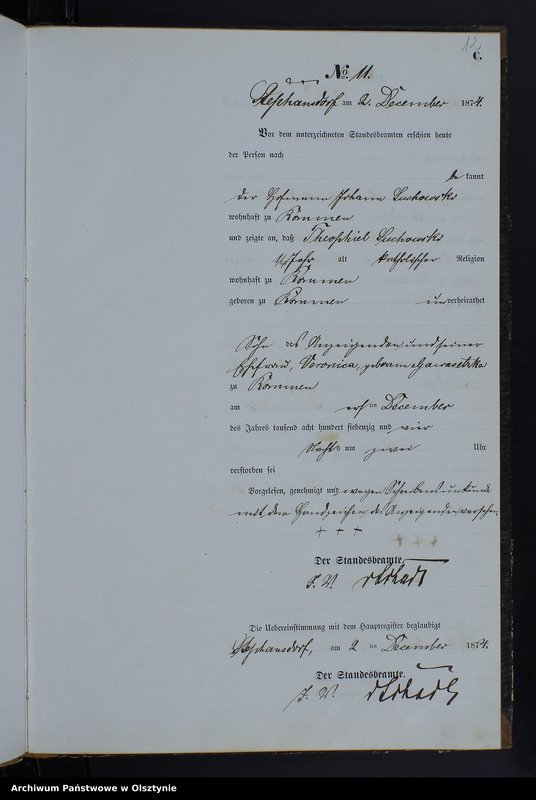 12.
C.
No. 11.
Stephansdorf am 2. December 1874.
Vor dem unterzeichneten Standesbeamten erschien heute
der Person nach
be kannt
der Hofmann Johann Suchowski
wohnhaft zu Kommen
und zeigte an, daß Theophiel Suchowski
Jahr alt katholischer Religion
wohnhaft zu Kommen
geboren zu Kommen unverheirathet
Sohn des Anzeigenden und seiner
Ehefrau, Veronica, geborene
zu Kommen
am ten December
des Jahres tausend acht hundert siebenzig und vier
Nachts um zwei Uhr
verstorben sei
Vorgelesen, genehmigt und wegen Schreibensunkunde
mit dem Handzeichen des Anzeigenden versehen.
+ + +
Der Standesbeamte.
I. V.
Die Uebereinstimmung mit dem Hauptregister beglaubigt
Stephansdorf, am 2 ten December 1874.
Der Standesbeamte.
I. V.
Archiwum Państwowe w Olsztynie